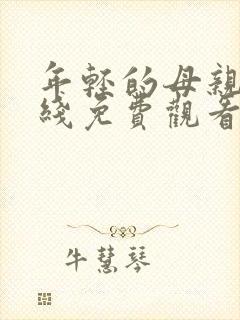 年轻的母親
綫免費觀看
牛慧琴